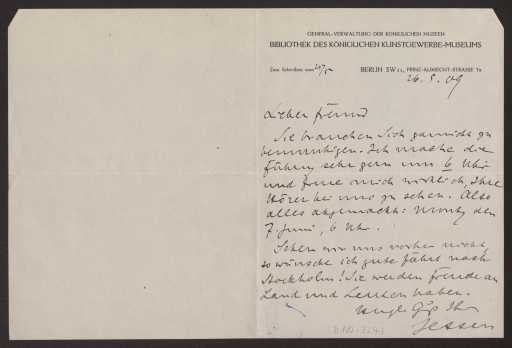 GENERAL-VERWALTUNG DER KÖNIGLICHEN MUSEEN
BIBLIOTHEK DES KÖNIGLICHEN KUNSTGEWERBE-MUSEUMS
Zum Schreiben vom
BERLIN SW 11, PRINZ-ALBRECHT-STRASSE 7a
26. 5. 09
Lieber Freund
Sie brauchen Sich garnicht zu
beunruhigen. Ich mache die
Führung sehr gern um 6 Uhr
und freue mich wirklich, Ihre
Hörer bei uns zu sehen. Also
alles abgemacht: Montag den
7. Juni, 6 Uhr.
Sehen wir uns vorher nicht,
so wünsche ich gute Fahrt nach
Stockholm! Sie werden Freude an
Land und Leuten haben.
Ihr
Jessen